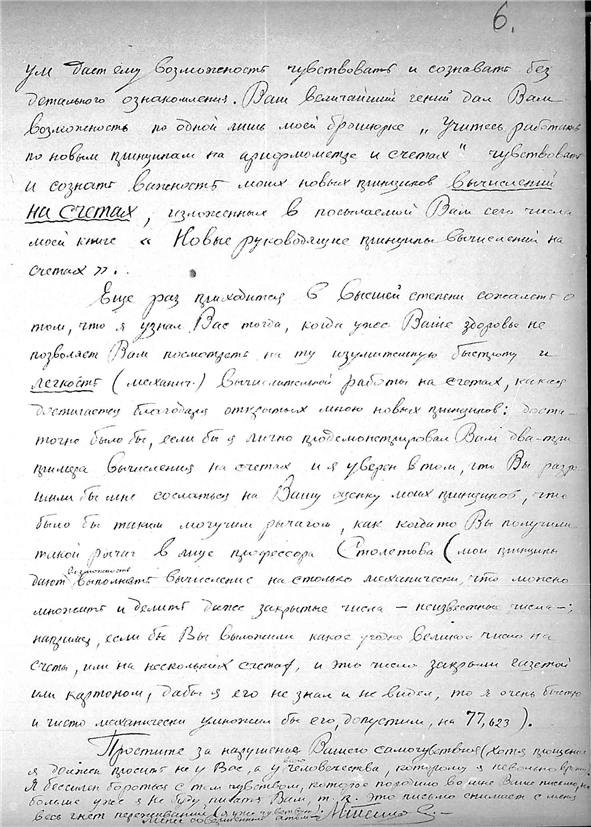 6.
ум даст ему возможность чувствовать и сознавать без
детального ознакомления. Ваш величайший гений дал Вам
возможность по одной лишь моей брошюрке „Учитесь работать
по новым принципам на арифмометре и счетах" чувствовать
и сознать важность моих новых принципов вычислений
на счетах, изложенных в посылаемой Вам сего числа
моей книге « Новые руководящие принципы вычислений на
счетах ».
Еще раз приходится в высшей степени сожалеть о
том, что я узнал Вас тогда, когда уже Ваше здоровье не
позволяет Вам посмотреть на ту изумительную быстроту и
легкость (механич.) вычислительной работы на счетах, какая
достигается благодаря открытых мною новых принципов: доста-
точно было бы, если бы я лично продемонстрировал Вам два-три
примера вычисления на счетах и я уверен в том, что Вы разре-
шили бы мне сослаться на Вашу оценку моих принципов, что
было бы таким могучим рычагом, как когда то Вы получили
такой рычаг в лице профессора Столетова (мои принципы
дают возможность выполнять вычисление на столько механически, что можно
множить и делить даже закрытые числа — неизвестные числа —;
например, если бы Вы выложили какое угодно великое число на
счеты, или на нескольких счетах, и это число закрыли газетой
или картоном, дабы я его не знал и не видел, то я очень быстро
и чисто механически умножил бы его, допустим, на 77,623).
Простите за нарушение Вашего самочувствия (хотя прощения
я должен просить не у Вас, а у всего человечества, которому я невольно врежу).
Я бессилен бороться с тем чувством, которое породило во мне Ваше письмо, но
больше уже я не буду писать Вам, т. к. это письмо снимает с меня
весь гнет переживаний